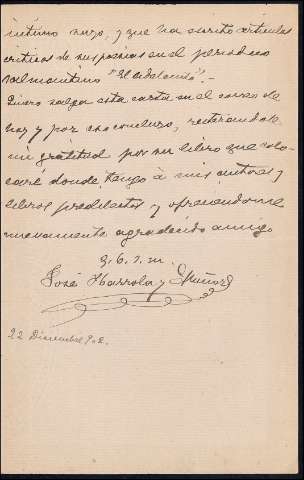 íntimo suyo, y que ha escrito artículos
críticos de sus poesías en el periódico
salmantino "El
Quiero salga esta carta en el correo de
hoy y por eso concluyo, reiterándole
mi gratitud por su libro que colo-
caré donde tengo á mis autores y
libros predilectos y ofreciéndome
nuevamente agradecido amigo
q. b. s. m.
José Ibarrola y Muñoz
22 Diciembre 902.